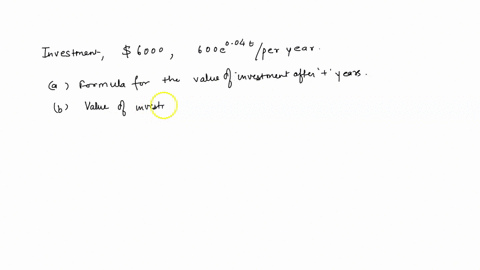 Investment, $6000, 600e^0.04t/per year.
(a) Formula for the value of investment after 't' years.
(b) Value of invest